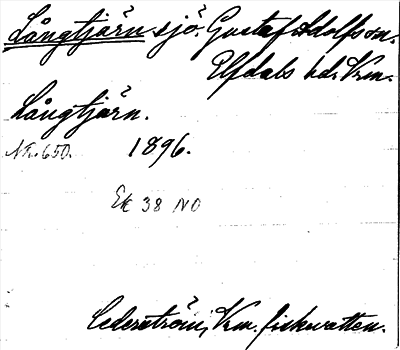 Långtjärn sjö. Gustaf Adolfs sn.
Elfdals hd. Vrm.
Långtjärn.
Nr. 650. 1896.
Ek 38 NO
Cederström, Vrm. fiskvatten.